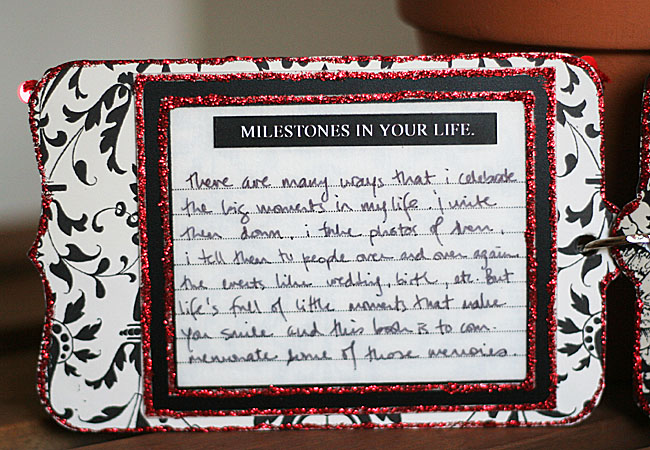 MILESTONES IN YOUR LIFE.
there are many ways that i celebrate
the big moments in my life. i write
them down. i take photos of them.
i tell them to people over and over again.
the events like wedding, birth, etc. But
life's full of little moments that make
you smile and this book is to com-
memorate some of those memories.